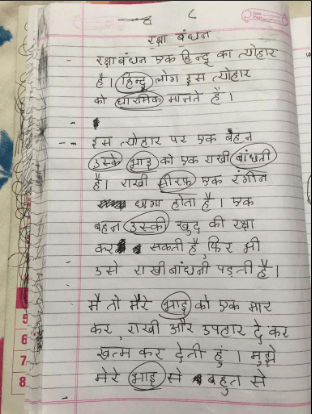 रक्षा बंधन
रक्षाबंधन एक हिन्दु का त्योहार
है। हिन्दु लोग इस त्योहार
को धारमिक मानते है।
इस त्योहार पर एक बहन
उसके भाइ को एक राखी बांधती
है। राखी सीरफ एक रंगीन
धागा होता है। एक
बहन उसकी खुद की रक्षा
कर सकती है, फिर भी
उसे राखी बांधनी पड़ती है।
मै तो मेरे भाइ को एक मार
कर, राखी और उपहार दे कर
खत्म कर देती हुं। मुझे
मेरे भाइ से बहुत से
5
6
7
8